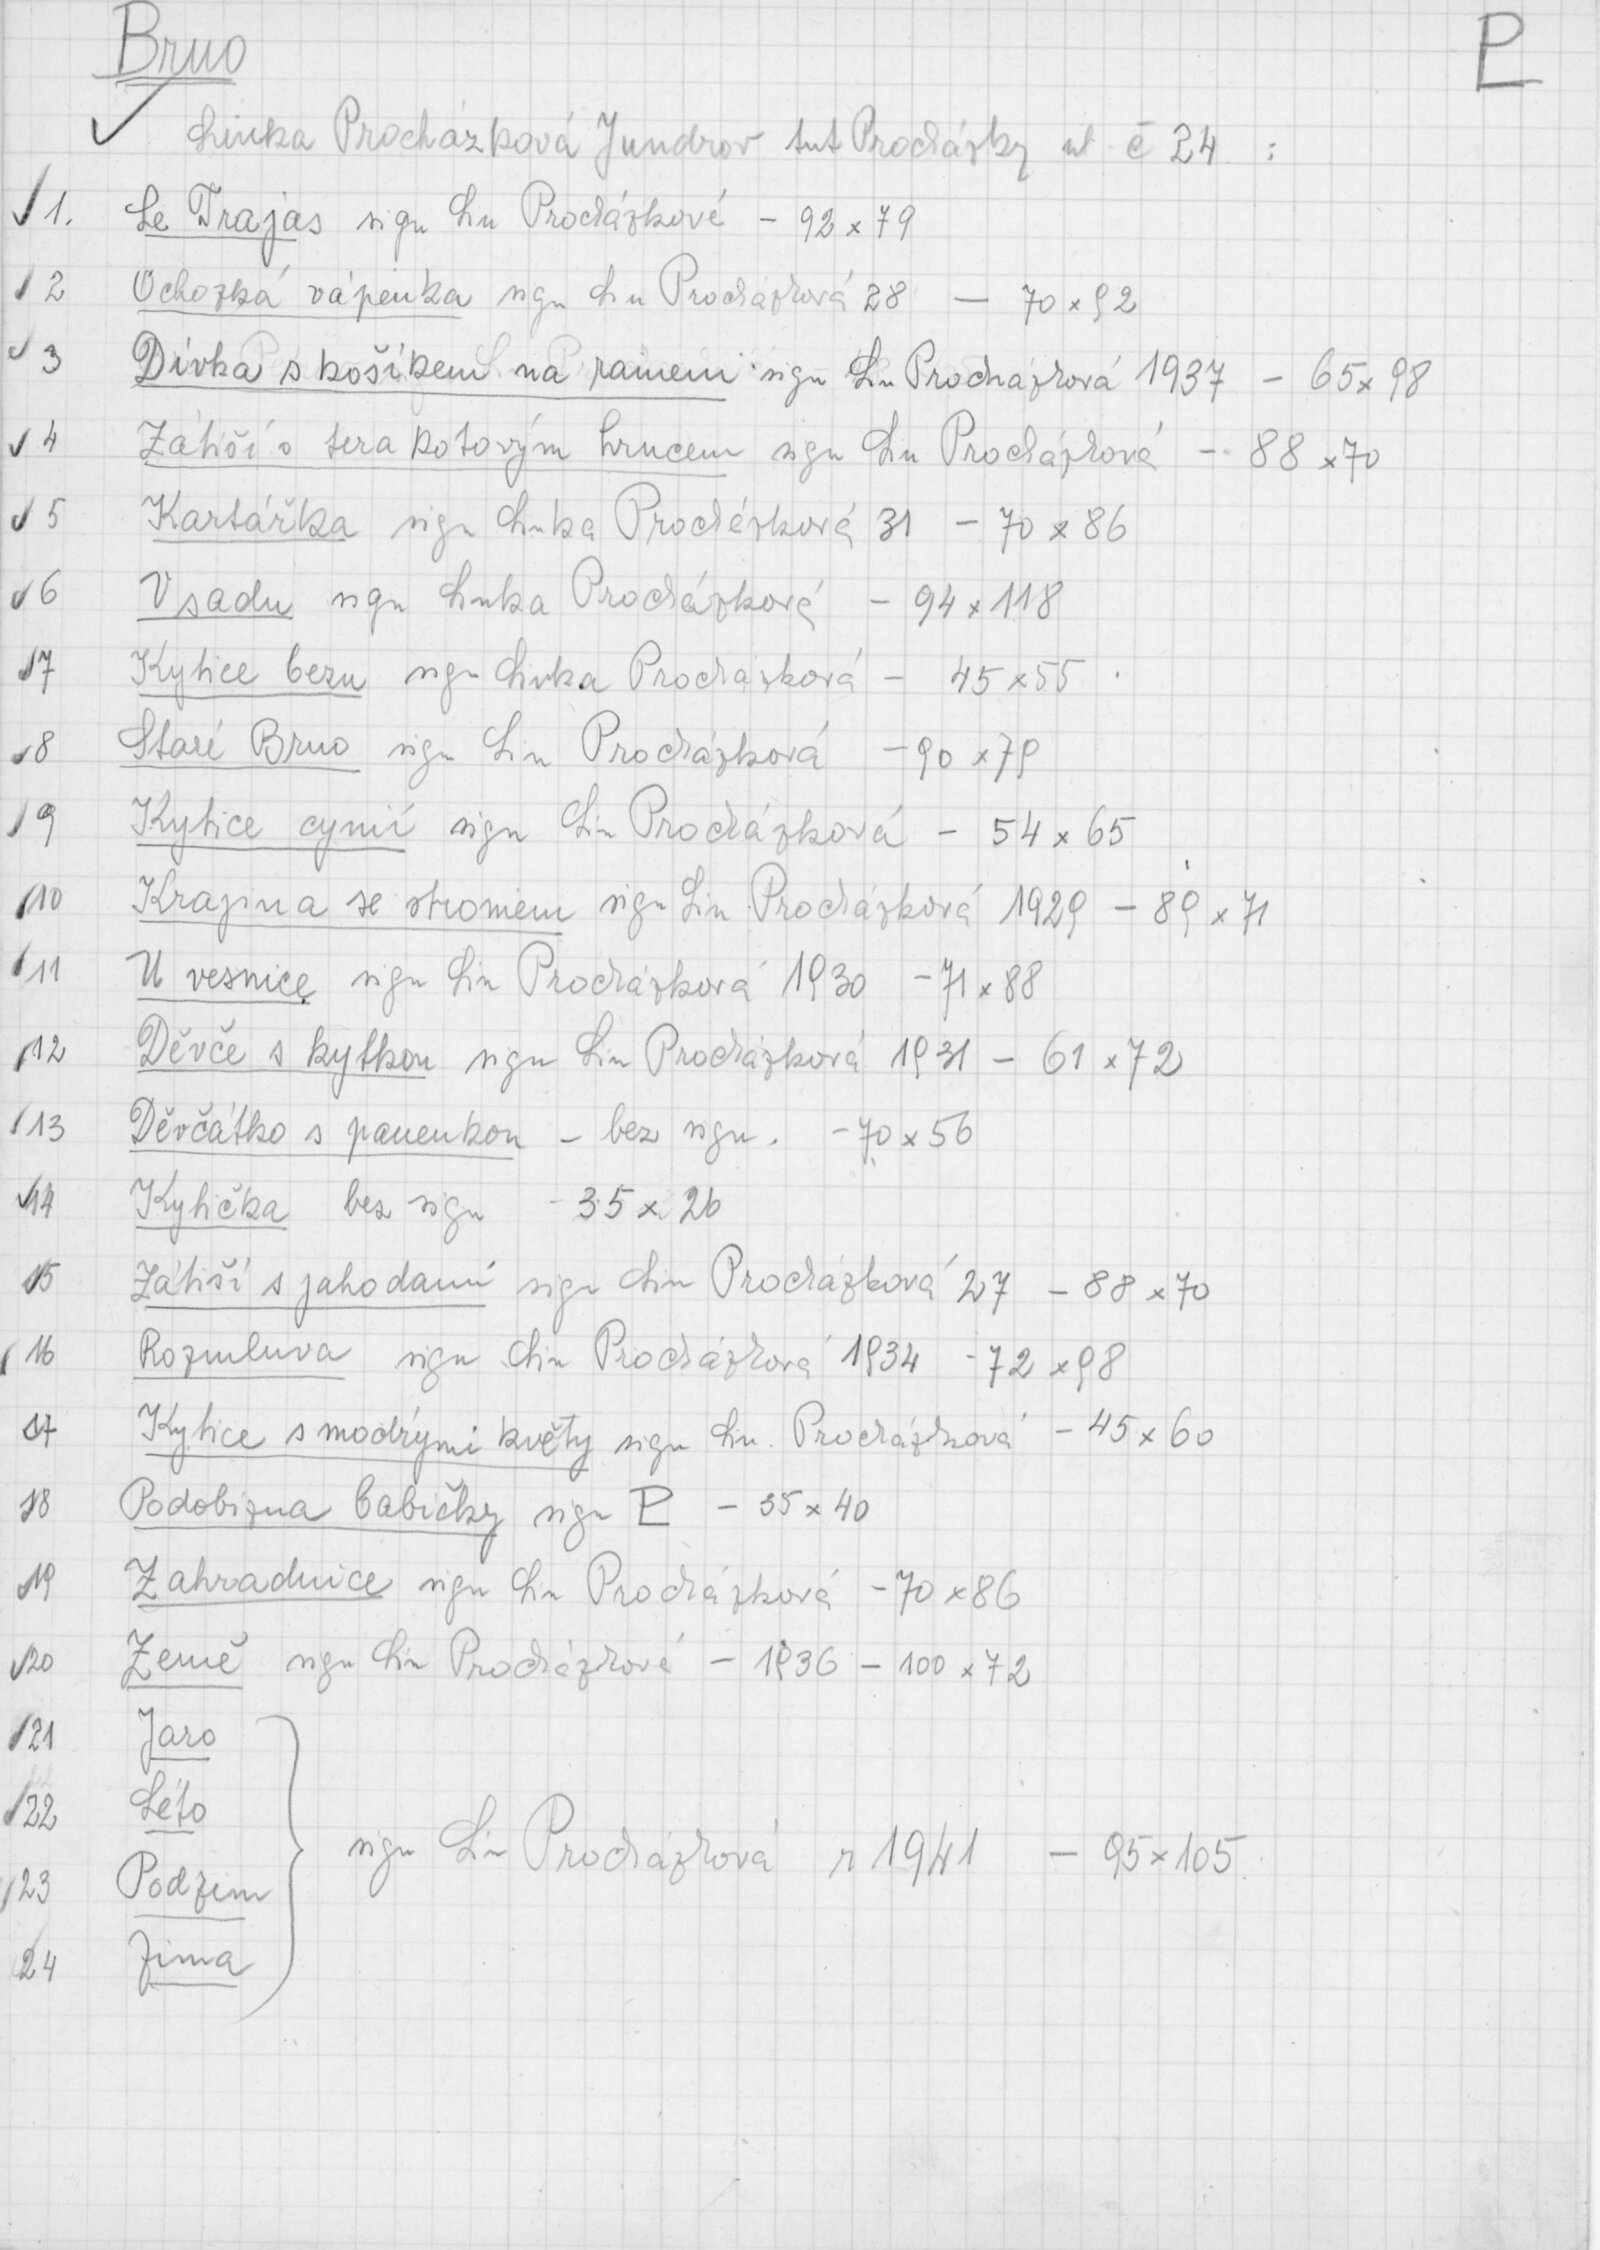 Brno
P
Linka Procházková Jundrov Ant Procházky ul č 24 :
1. Le Trajas sign Lin Procházková - 92 x 79
2 Ochozká vápenka sign Lin Procházková 28 — 70 x 92
3 Dívka s košíkem na rameni sign Lin Procházková 1937 - 65 x 98
4 Zátiší s terakotovým hrncem sign Lin Procházková - 88 x 70
5 Kartářka sign Linka Procházková 31 - 70 x 86
6 V sadu sign Linka Procházková - 94 x 118
7 Kytice bezu sign Linka Procházková - 45 x 55
8 Staré Brno sign Lin Procházková - 90 x 79
9 Kytice cynií sign Lin Procházková - 54 x 65
10 Krajina se stromem sign Lin Procházková 1929 - 89 x 71
11 U vesnice sign Lin Procházková 1930 - 71 x 88
12 Děvče s kytkou sign Lin Procházková 1931 - 61 x 72
13 Děvčátko s panenkou - bez sign. - 70 x 56
14 Kytička bez sign - 35 x 26
15 Zátiší s jahodami sign Lin Procházková 27 - 88 x 70
16 Rozmluva sign Lin Procházková 1934 - 72 x 98
17 Kytice s modrými květy sign Lin. Procházková - 45 x 60
18 Podobizna babičky sign P - 35 x 40
19 Zahradnice sign Lin Procházková - 70 x 86
20 Země sign Lin Procházková - 1936 - 100 x 72
21 Jaro
22 Léto
sign Lin Procházková r 1941 - 95 x 105
23 Podzim
24 Zima